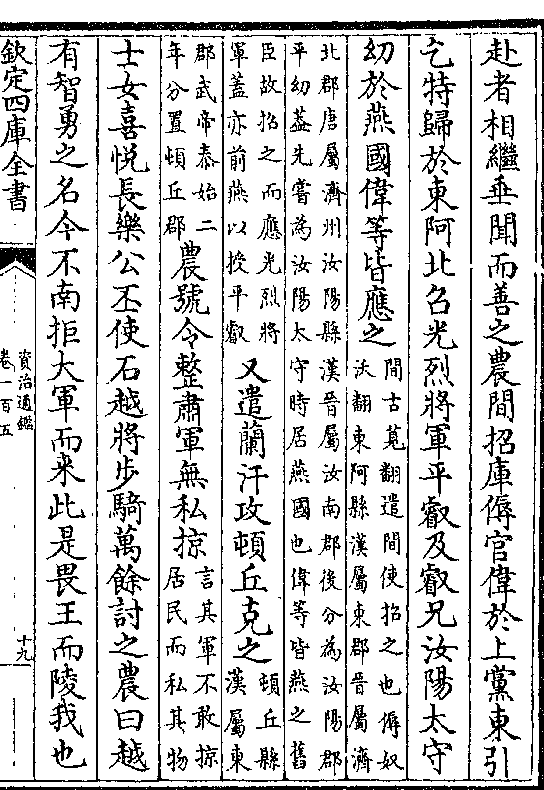 赴者相繼垂聞而善之農間招庫傉官偉於上黨東引
乞特歸於東阿北召光烈將軍平叡及叡兄汝陽太守
幼於燕國偉等皆應之
間古莧翻遣間使招之也傉奴
沃翻東阿縣漢屬東郡晉屬濟
北郡唐屬濟州汝陽縣漢晉屬汝南郡後分為汝陽郡
平幼蓋先嘗為汝陽太守時居燕國也偉等皆燕之舊
臣故招之而應光烈將
軍蓋亦前燕以授平叡
又遣蘭汗攻頓丘克之
頓丘縣
漢屬東
郡武帝泰始二
年分置頓丘郡
農號令整肅軍無私掠
言其軍不敢掠
居民而私其物
士女喜悅長樂公丕使石越將步騎萬餘討之農曰越
有智勇之名今不南拒大軍而来此是畏王而陵我也
欽定四庫全書
資治通鑑
卷一百五
十九